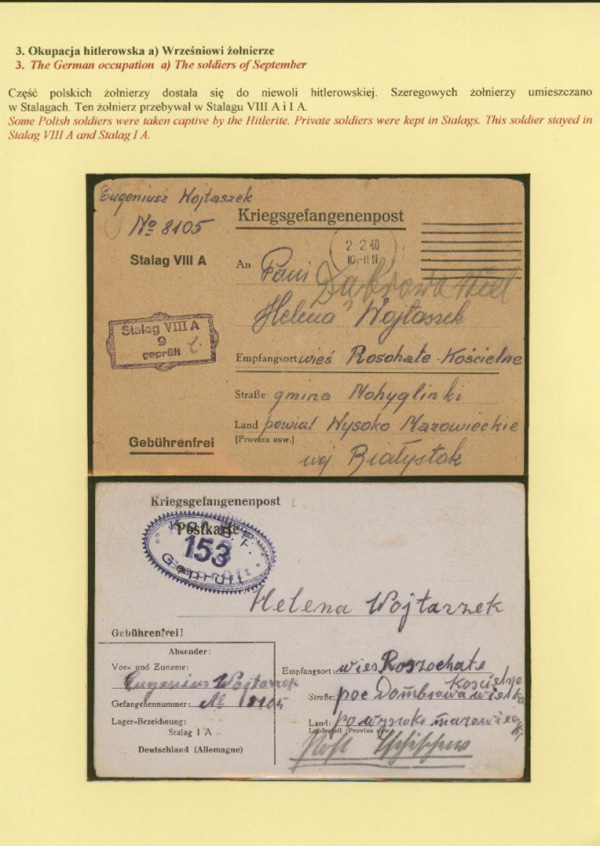 3. Okupacja hitlerowska a) Wrześniowi żołnierze
3. The German occupation a) The soldiers of September
Część polskich żołnierzy dostała się do niewoli hitlerowskiej. Szeregowych żołnierzy umieszczano
w Stalagach. Ten żołnierz przebywał w Stalagu VIII A i I A.
Some Polish soldiers were taken captive by the Hitlerite. Private soldiers were kept in Stalags. This soldier stayed in
Stalag VIII A and Stalag I A.
Eugeniusz Wojtaszek
№ 8105
Kriegsgefangenenpost
2 2.40
Stalag VIII A
An Pani
Dąbrowa Wiel
Helena Wojtaszek
Stalag VIII A
9
geprüft
Empfangsort wieś Rosochate-Kościelne
Straße gmina Mohyglinki
Land powiat Wysoko Mazowieckie
[Provinz usw.]
Gebührenfrei
woj Białystok
Kriegsgefangenenpost
Postkarte
153
Geprüft
Helena Wojtarzek
Gebührenfrei!
Absender:
Vor- und Zuname:
Eugeniusz Wojtaszek
Gefangenennummer: № 8105
Lager-Bezeichnung:
Stalag I A
Deutschland (Allemagne)
Empfangsort: wies Roszochate
Kościelne
Straße: poc Dombrowa wielka
Land: pow wysoko mazowieck
Landesteil (Provinz usw.)